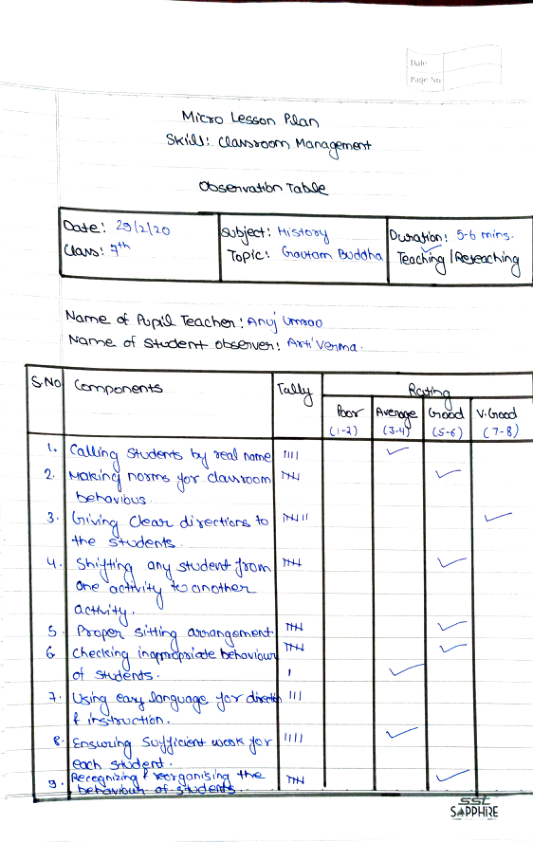 Date
Page No
Micro Lesson Plan
Skill: Classroom Management
Observation Table
Date: 29/2/20
Class: 7th
Subject: History
Topic: Goutam Buddha
Duration: 5-6 mins.
Teaching / Reteaching
Name of Pupil Teacher: Anuj Umrao
Name of Student observer: Arti Verma.
S.No Components Tally Rating
Poor Average Good V.Good
(1-2) (3-4) (5-6) (7-8)
1. Calling Students by real name IIII ✓
2. Making norms for classroom 𝍸 ✓
behaviour
3. Giving Clear directions to 𝍸 II ✓
the students.
4. Shifting any student from 𝍸 ✓
one activity to another
activity.
5. Proper sitting arrangement. 𝍸 ✓
6 Checking inappropriate behaviour 𝍸 ✓
of students. I ✓
7. Using easy language for direction III
& instruction.
8. Ensuring Sufficient work for IIII ✓
each student.
9. Recognizing & reorganising the 𝍸 ✓
behaviour of students
SSI
SAPPHIRE